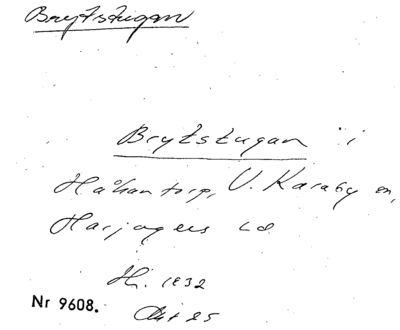 Brytstugan
Brytstugan i
Håkantorp, V. Karaby sn,
Harjagers hd
Hi. 1832
Nr 9608.